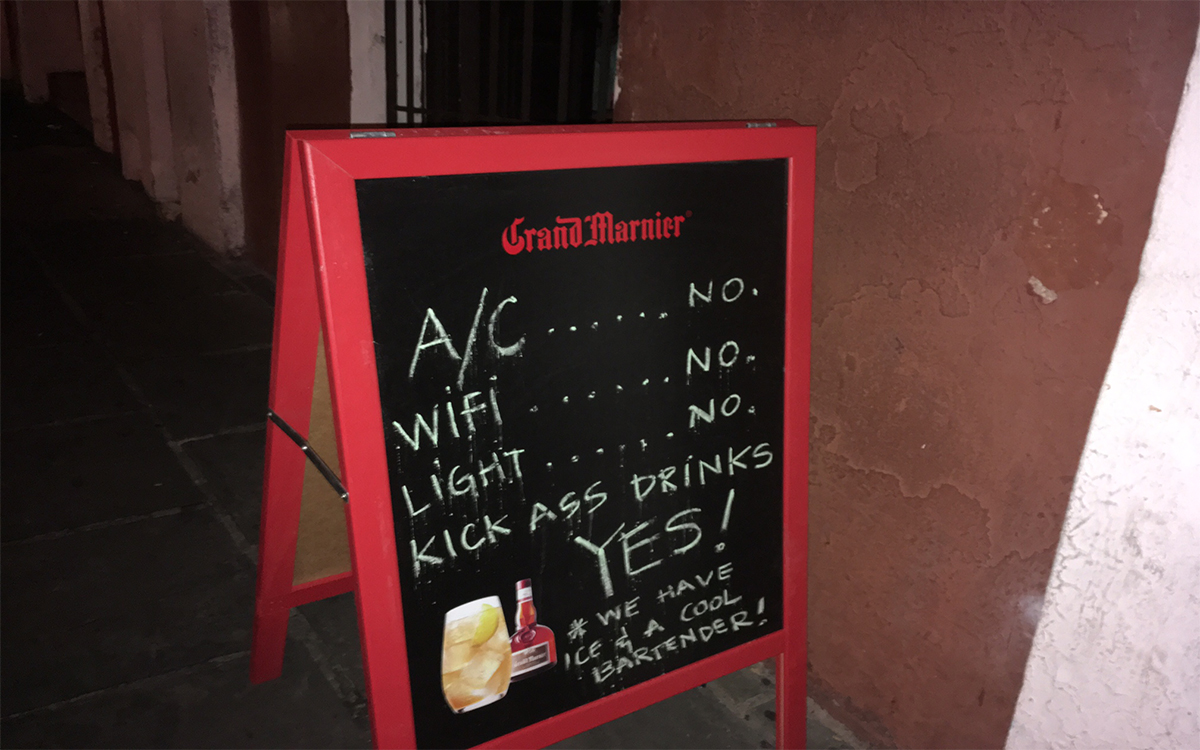 Grand Marnier®
A/C ...... NO.
WIFI ...... NO.
LIGHT ...... NO.
KICK ASS DRINKS
YES!
* WE HAVE
ICE & A COOL
BARTENDER!
Grand Marnier